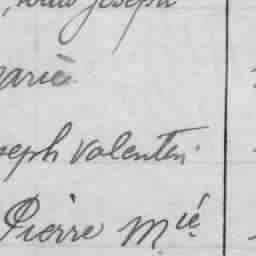 Joseph
arie
seph Valentin
Pierre Mié